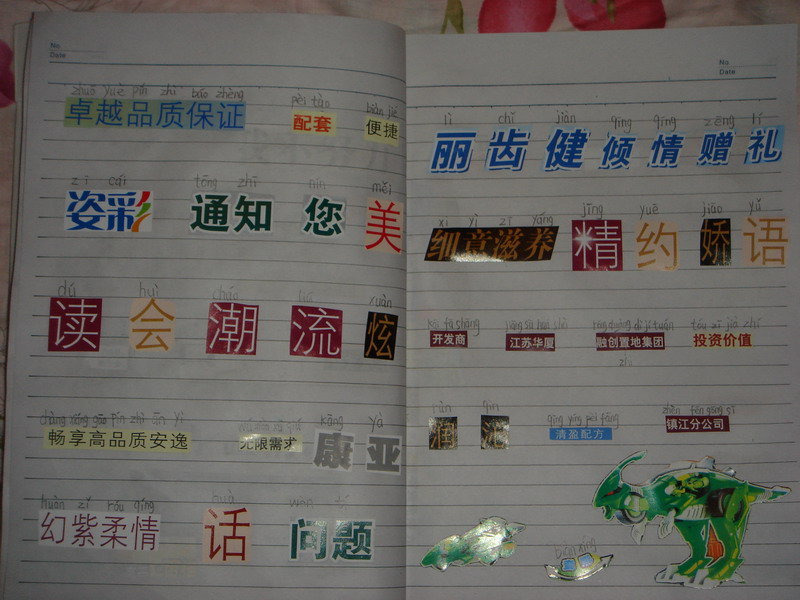 No
Date
zhuō yuè pǐn zhì bǎo zhèng pèi tào biàn jié
卓越品质保证 配套 便捷
zī cǎi tōng zhī nín měi
姿彩 通知 您 美
dú huì cháo liú xuàn
读 会 潮 流 炫
chàng xiǎng gāo pǐn zhì ān yì kāng yà
畅享高品质安逸 无限需求 康 亚
huàn zǐ róu qíng huà wèn tí
幻紫柔情 话 问题
No
Date
lì chǐ jiàn qīng qíng zèng lǐ
丽 齿 健 倾 情 赠 礼
xì yì zī yǎng jīng yuē jiāo yǔ
细意滋养 精 约 娇 语
kāi fā shāng tóu zī jià zhí
开发商 江苏华厦 融创置地集团 投资价值
zhì
rùn qīng yíng pèi fāng zhèn fēn gōng sī
润 清盈配方 镇江分公司
biàn xíng